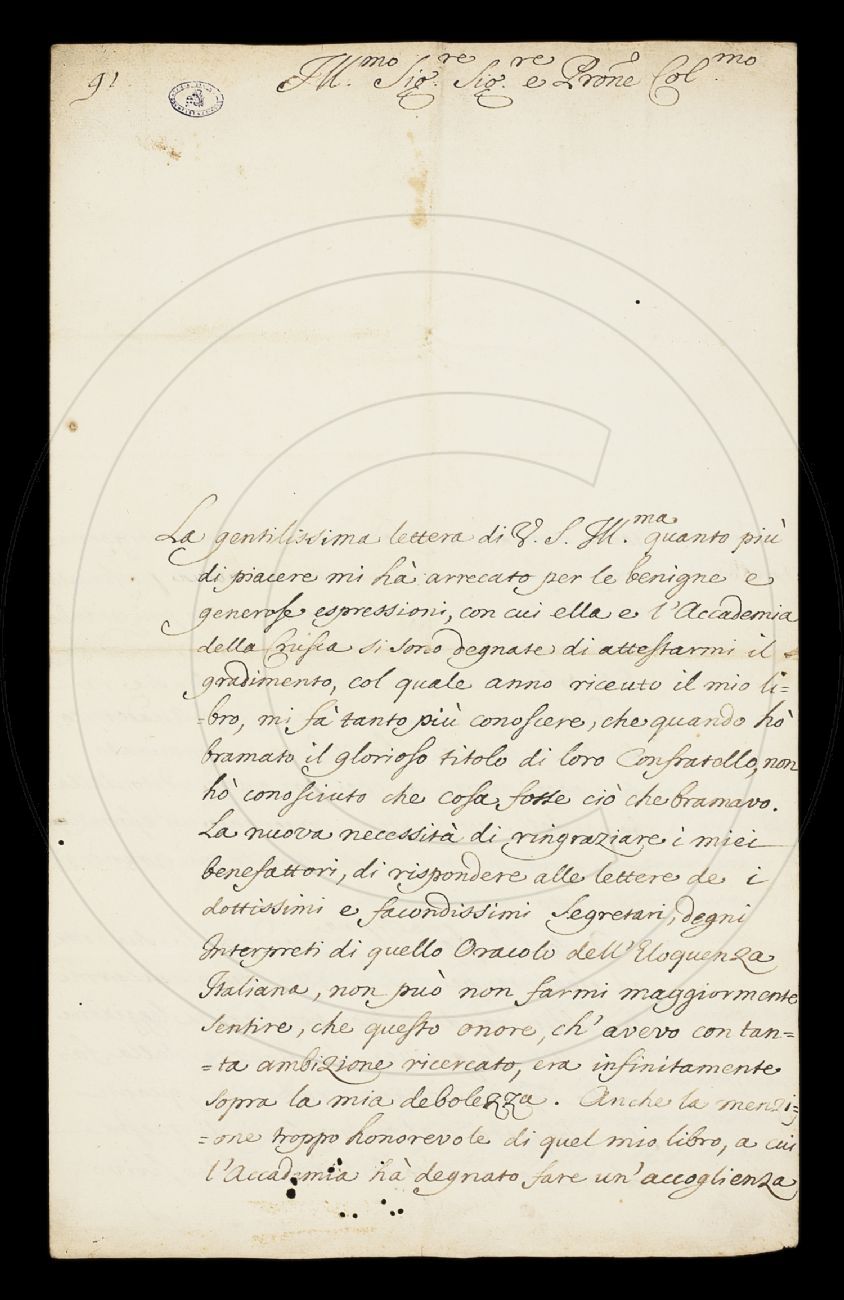 91
Ill.mo Sig.re Sig.re e Prone Col.mo
La gentilissima lettera di V. S. Ill.ma quanto più
di piacere mi hà arrecato per le benigne e
generose espressioni, con cui ella e l'Accademia
della Crusca si sono degnate di attestarmi il
gradimento, col quale anno riceuto il mio li=
=bro, mi fà tanto più conoscere, che quando hò
bramato il glorioso titolo di loro Confratello, non
hò conosciuto che cosa fosse ciò che bramavo.
La nuova necessità di ringraziare i miei
benefattori, di rispondere alle lettere de i
dottissimi e facondissimi Segretari, degni
Interpreti di quello Oracolo dell'Eloquenza
Italiana, non può non farmi maggiormente
sentire, che questo onore, ch'avevo con tan=
=ta ambizione ricercato, era infinitamente
sopra la mia debolezza. Anche la menzi=
=one troppo honorevole di quel mio libro, a cui
l'Accademia hà degnato fare un'accoglienza